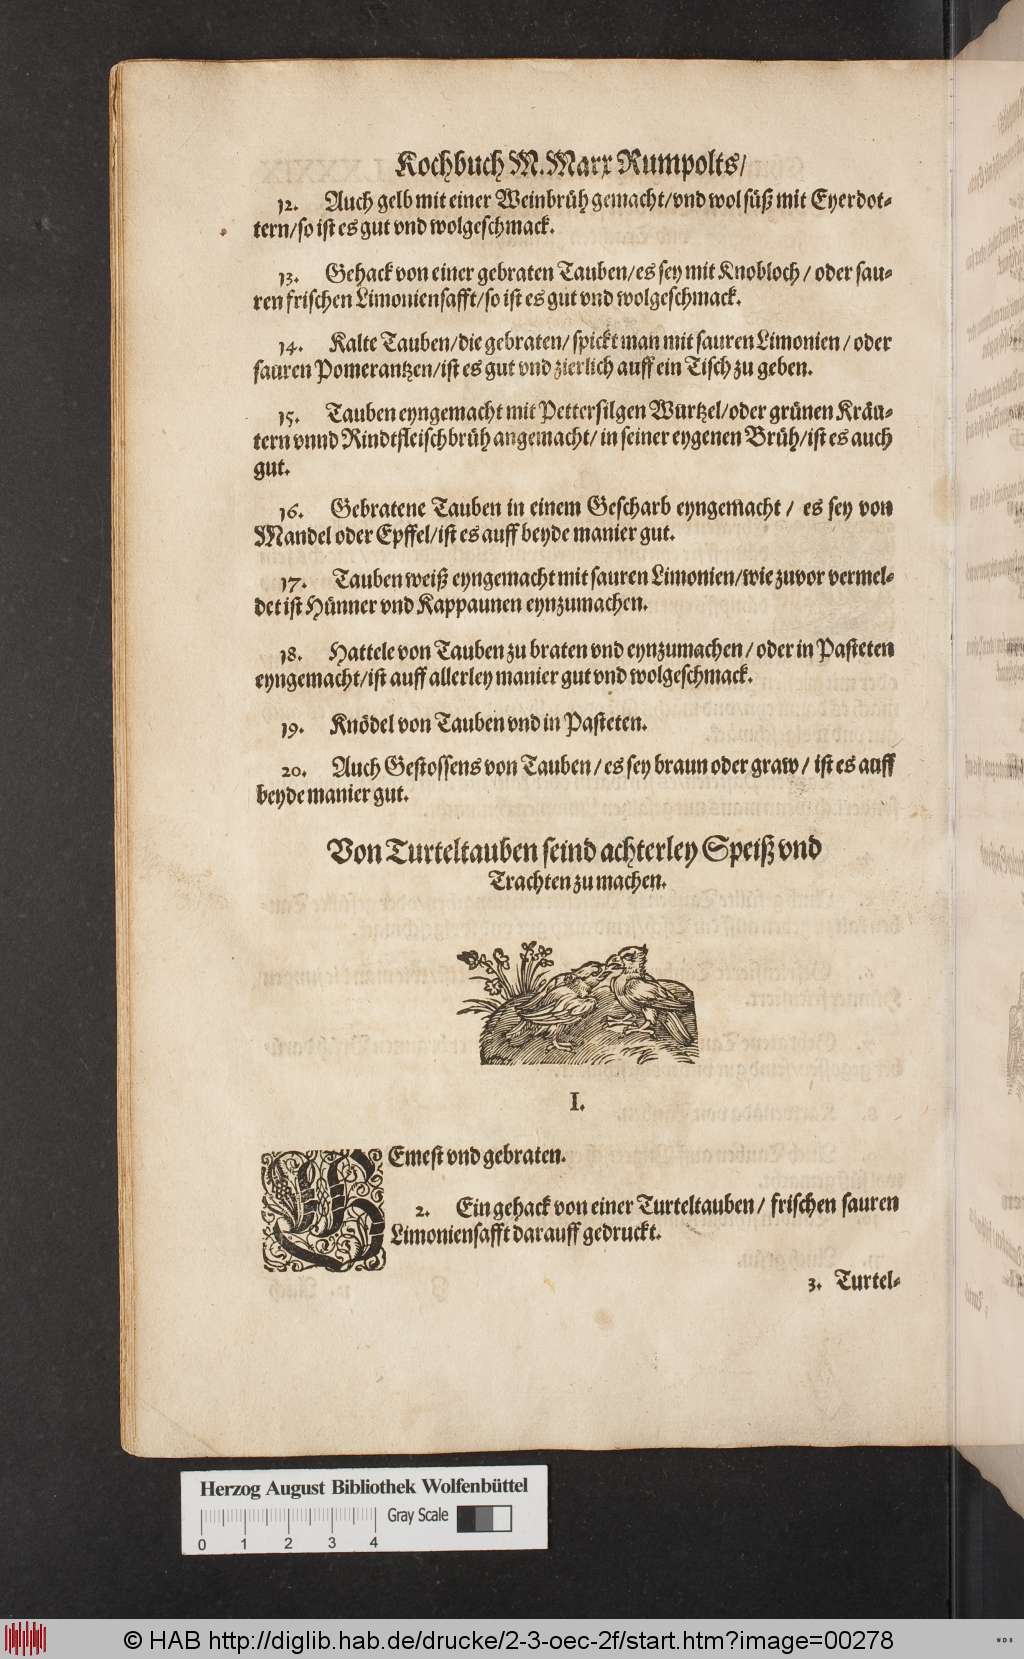 Kochbuch M. Marx Rumpolts/
12. Auch gelb mit einer Weinbrüh gemacht/vnd wol süß mit Eyerdot-
tern/so ist es gut vnd wolgeschmack.
13. Gehack von einer gebraten Tauben/es sey mit Knobloch/ oder sau-
ren frischen Limoniensafft/so ist es gut vnd wolgeschmack.
14. Kalte Tauben/die gebraten/ spickt man mit sauren Limonien/ oder
sauren Pomerantzen/ist es gut vnd zierlich auff ein Tisch zu geben.
15. Tauben eyngemacht mit Pettersilgen Wurtzel/oder grünen Kräu-
tern vnnd Rindtfleischbrüh angemacht/ in seiner eygenen Brüh/ist es auch
gut.
16. Gebratene Tauben in einem Gescharb eyngemacht / es sey von
Mandel oder Epffel/ist es auff beyde manier gut.
17. Tauben weiß eyngemacht mit sauren Limonien/wie zuvor vermel-
det ist Hünner vnd Kappaunen eynzumachen.
18. Hattele von Tauben zu braten vnd eynzumachen/ oder in Pasteten
eyngemacht/ist auff allerley manier gut vnd wolgeschmack.
19. Knödel von Tauben vnd in Pasteten.
20. Auch Gestossens von Tauben/ es sey braun oder graw/ ist es auff
beyde manier gut.
Von Turteltauben seind achterley Speiß vnd
Trachten zu machen.
I.
GEmest vnd gebraten.
2. Ein gehack von einer Turteltauben/ frischen sauren
Limoniensafft darauff gedruckt.
3. Turtel-
Herzog August Bibliothek Wolfenbüttel
Gray Scale
0 1 2 3 4
© HAB http://diglib.hab.de/drucke/2-3-oec-2f/start.htm?image=00278
WDB